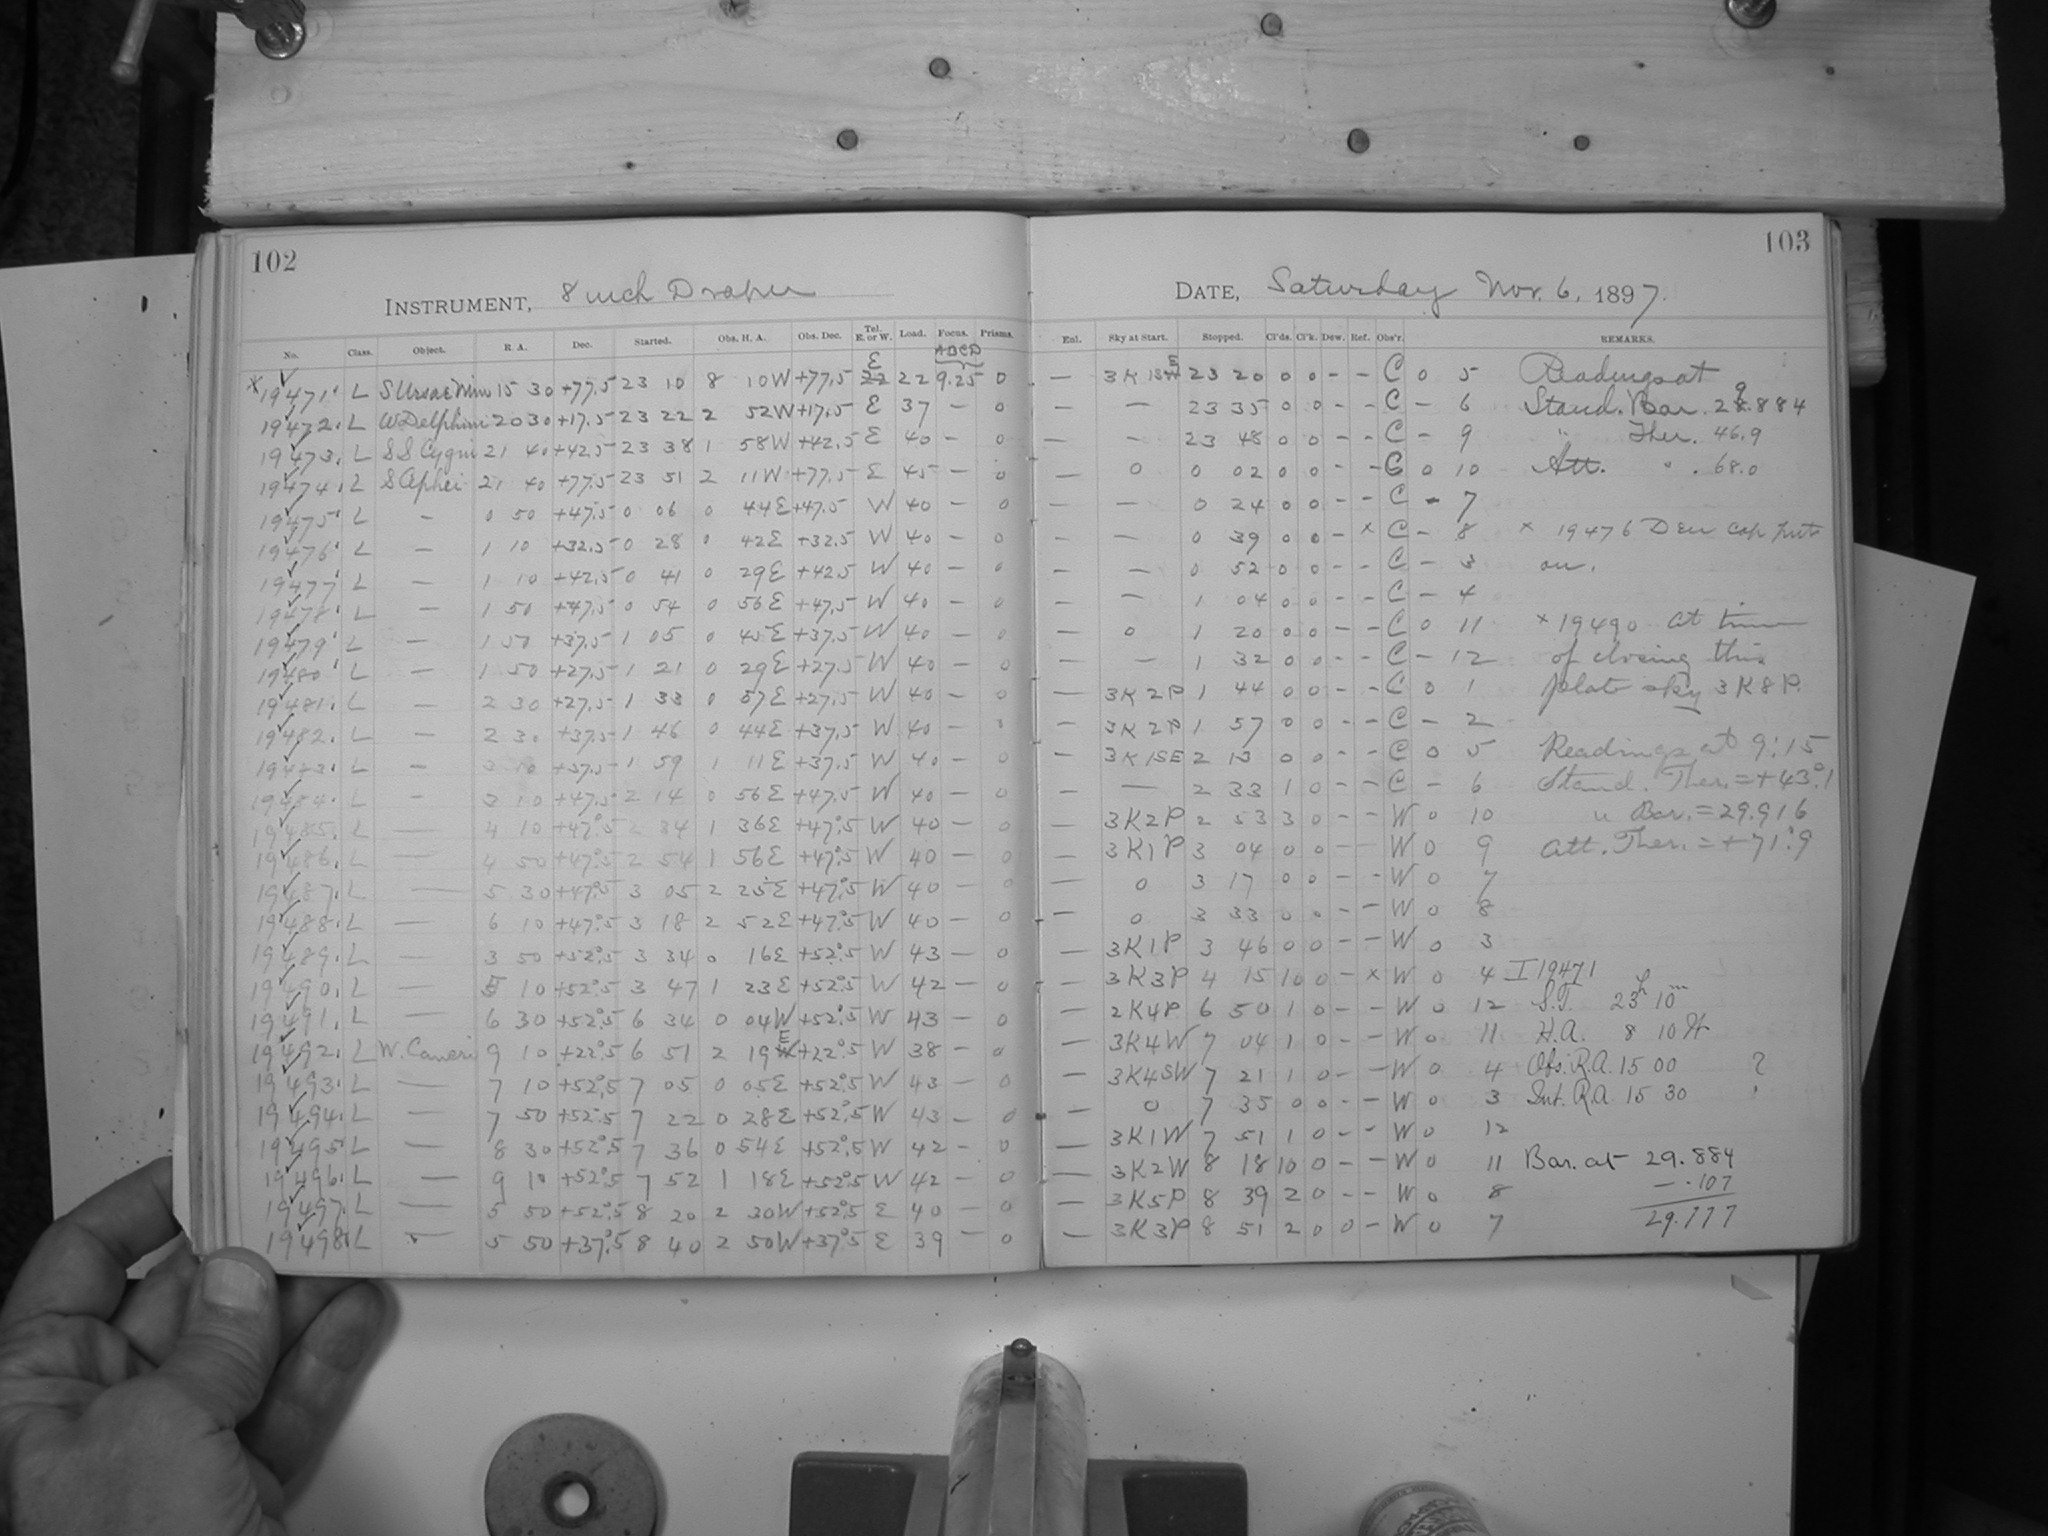 102
INSTRUMENT, 8 inch Draper
No. Class. Object. R. A. Dec. Started. Obs. H. A. Obs. Dec. Tel. E. or W. Load. Focus. Prisms.
ABCD
E
x 19471. L S Ursae Min 15 30 +77.5 23 10 8 10W +77.5 22 22 9.25 0
19472. L W Delphini 20 30 +17.5 23 22 2 52W +17.5 E 37 — 0
19473. L SS Cygni 21 40 +42.5 23 38 1 58W +42.5 E 40 — 0
19474. L S 21 40 +77.5 23 51 2 11W +77.5 E 45 — 0
19475. L — 0 50 +47.5 0 06 0 44E +47.5 W 40 — 0
19476. L — 1 10 +32.5 0 28 0 42E +32.5 W 40 — 0
19477. L — 1 10 +42.5 0 41 0 29E +42.5 W 40 — 0
19478. L — 1 50 +47.5 0 54 0 56E +47.5 W 40 — 0
19479. L — 1 50 +37.5 1 05 0 45E +37.5 W 40 — 0
19480. L — 1 50 +27.5 1 21 0 29E +27.5 W 40 — 0
19481. L — 2 30 +27.5 1 33 0 57E +27.5 W 40 — 0
19482. L — 2 30 +37.5 1 46 0 44E +37.5 W 40 — 0
19483. L — 3 10 +37.5 1 59 1 11E +37.5 W 40 — 0
19484. L — 3 10 +47.5 2 14 0 56E +47.5 W 40 — 0
19485. L — 4 10 +47°.5 2 34 1 36E +47°.5 W 40 — 0
19486. L — 4 50 +47°.5 2 54 1 56E +47°.5 W 40 — 0
19487. L — 5 30 +47°.5 3 05 2 25E +47°.5 W 40 — 0
19488. L — 6 10 +47°.5 3 18 2 52E +47°.5 W 40 — 0
19489. L — 3 50 +52°.5 3 34 0 16E +52°.5 W 43 — 0
19490. L — 5 10 +52°.5 3 47 1 23E +52°.5 W 42 — 0
19491. L — 6 30 +52°.5 6 34 0 04W +52°.5 W 43 — 0
19492. L W. Cancri 9 10 +22°.5 6 51 2 19E +22°.5 W 38 — 0
19493. L — 7 10 +52°.5 7 05 0 05E +52°.5 W 43 — 0
19494. L — 7 50 +52°.5 7 22 0 28E +52°.5 W 43 — 0
19495. L — 8 30 +52°.5 7 36 0 54E +52°.5 W 42 — 0
19496. L — 9 10 +52°.5 7 52 1 18E +52°.5 W 42 — 0
19497. L — 5 50 +52°.5 8 20 2 30W +52°.5 E 40 — 0
19498. L — 5 50 +37°.5 8 40 2 50W +37°.5 E 39 — 0
103
DATE, Saturday Nov. 6, 1897.
Enl. Sky at Start. Stopped. Cl'ds. Cl'k. Dew. Ref. Obs'r. REMARKS.
— 3K1SE 23 20 0 0 - - C 0 5 Readings at
— — 23 35 0 0 - - C - 6 Stand. Bar. 29.884
— — 23 48 0 0 - - C - 9 " Ther. 46.9
— 0 0 02 0 0 - - C 0 10 Att. " . 68.0
— — 0 24 0 0 - - C - 7
— — 0 39 0 0 - x C - 8 x 19476 Dew cap put
— — 0 52 0 0 - - C - 3 on.
— — 1 04 0 0 - - C - 4
— 0 1 20 0 0 - - C 0 11 x 19490 At time
— — 1 32 0 0 - - C - 12 of closing this
— 3K2P 1 44 0 0 - - C 0 1 plate sky 3K8P.
— 3K2P 1 57 0 0 - - C - 2
— 3K1SE 2 13 0 0 - - C 0 5 Readings at 9:15
— — 2 33 1 0 - - C - 6 Stand. Ther. = +43°.1
— 3K2P 2 53 3 0 - - W 0 10 " Bar. = 29.916
— 3K1P 3 04 0 0 - - W 0 9 Att. Ther. = +71°.9
— 0 3 17 0 0 - - W 0 7
— 0 3 33 0 0 - - W 0 8
— 3K1P 3 46 0 0 - - W 0 3
— 3K3P 4 15 10 0 - x W 0 4 I 19471
— 2K4P 6 50 1 0 - - W 0 12 S.T. 23h 10m
— 3K4W 7 04 1 0 - - W 0 11 H.A. 8 10 W
— 3K4SW 7 21 1 0 - - W 0 4 Obs. R.A. 15 00 ?
— 0 7 35 0 0 - - W 0 3 Int. R.A. 15 30
— 3K1W 7 51 1 0 - - W 0 12
— 3K2W 8 18 10 0 - - W 0 11 Bar. at 29.884
— 3K5P 8 39 2 0 - - W 0 8 — .107
— 3K3P 8 51 2 0 0 - W 0 7 29.777